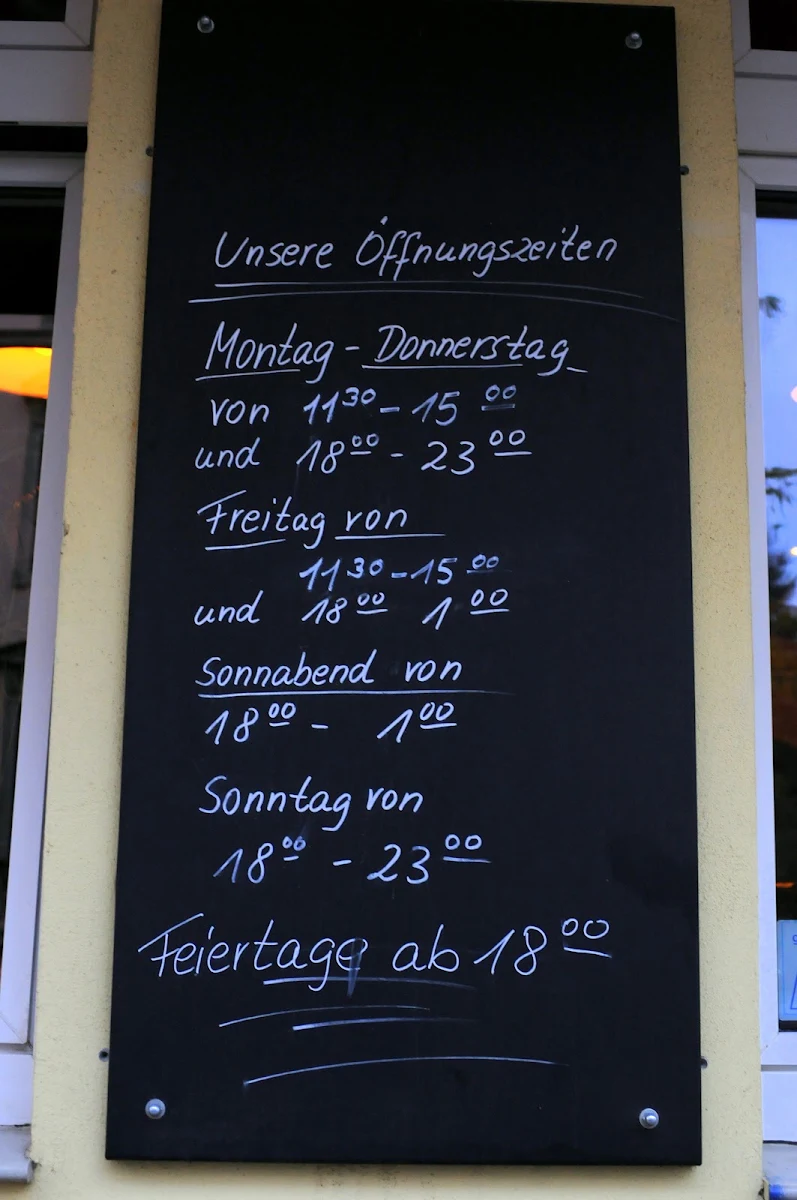 Unsere Öffnungszeiten
Montag - Donnerstag
von 11³⁰ - 15⁰⁰
und 18⁰⁰ - 23⁰⁰
Freitag von
11³⁰ - 15⁰⁰
und 18⁰⁰ 1⁰⁰
Sonnabend von
18⁰⁰ - 1⁰⁰
Sonntag von
18⁰⁰ - 23⁰⁰
Feiertage ab 18⁰⁰